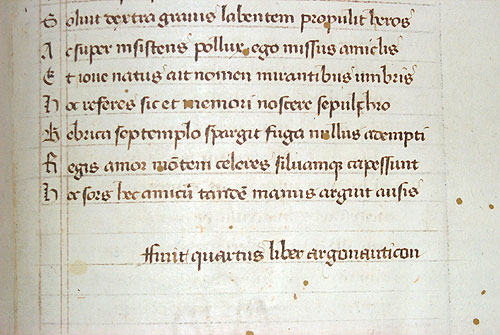 Soluit dextra grauis labentem propulit heros
Ac super insistens pollux ego missus amiclis
Et ioue natus ait nomen mirantibus umbris
Hoc referes sic et memori noscere sepulchro
Bebrica sep templo spargit fuga nullus adempti
Regis amor mōtem celeres siluamq capessunt
Hec sors hec amicū tandē manus arguit ausis
ffinit quartus liber argonauticon